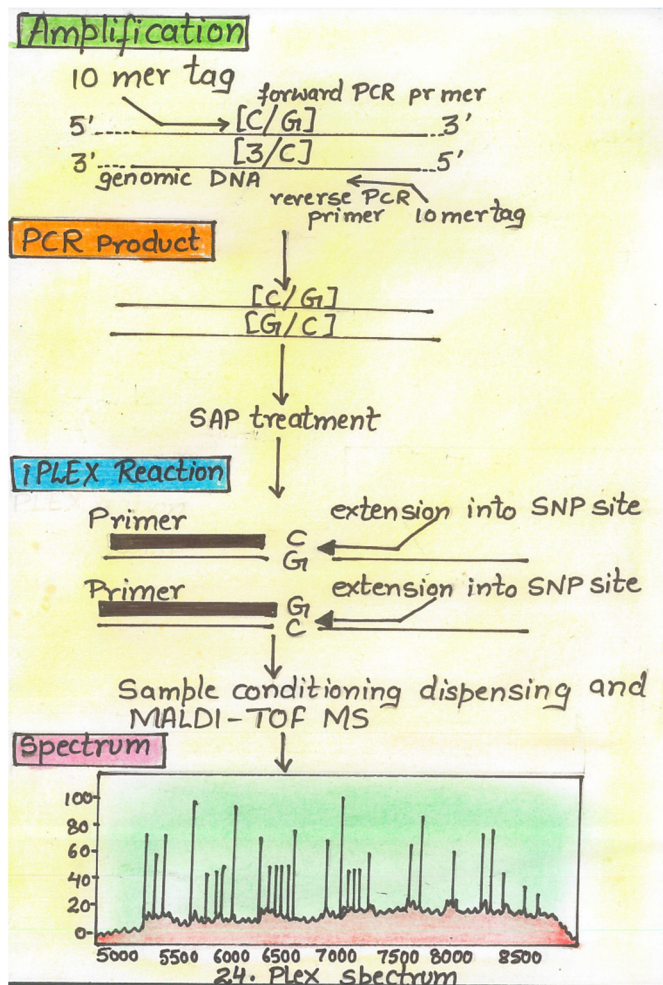 Amplification
10 mer tag
forward PCR pr mer
5' [C/G] 3'
3' [3/C] 5'
genomic DNA
reverse PCR
primer 10 mer tag
PCR product
[C/G]
[G/C]
SAP treatment
iPLEX Reaction
Primer extension into SNP site
C
G
Primer extension into SNP site
G
C
Sample conditioning dispensing and
MALDI-TOF MS
Spectrum
100
80
60
40
20
0
5000 5500 6000 6500 7000 7500 8000 8500
24. Plex spectrum